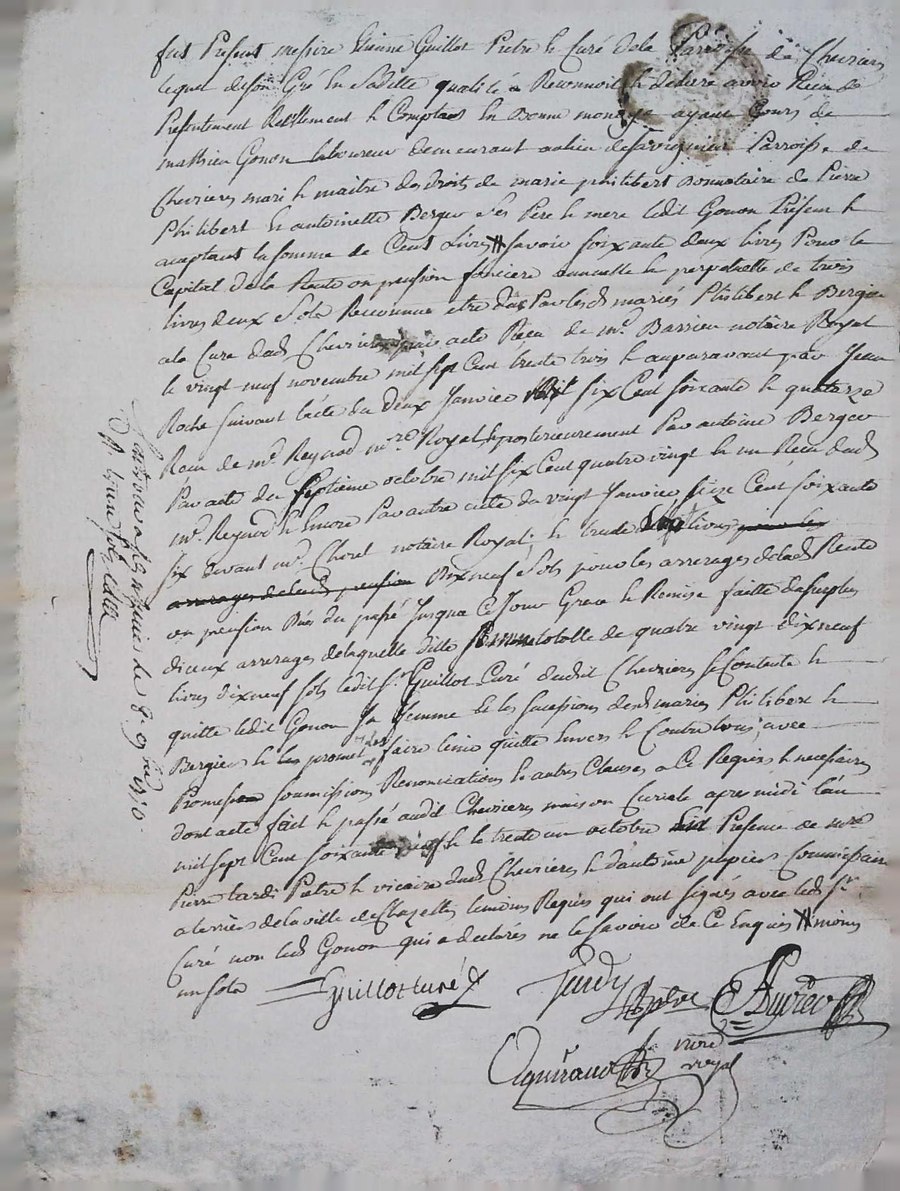 fut Present messire Etienne Guillot Pretre & Curé dela Parroisse de Chevrieres
lequel deson Gré En Saditte qualité a Reconnoit & declare avoir Recu de
Presentement Reellement & Comptant En Bonne monoye ayant Cours de
mathieu Gonon laboureur demeurant aulieu de Parroisse de
Chevrieres mari & maitre des droits de marie philibert Donnataire de Pierre
Philibert & antoinette Bergier Ses Pere & mere ledit Gonon Présent &
acceptant la somme de Cent Livres # Savoir soixante deux livres Pour le
Capital dela Rente ou pension fonciere annuelle & perpetuelle de trois
livres deux Sols Reconnue etre düe Par lesd. mariés Philibert & Bergier
ala Cure dud. Chevrieres par acte Recu de Me. Barrieu notaire Royal
le vingt neuf novembre mil sept Cent trente trois & auparavant par Jean
Roche suivant l'acte du deux Janvier mil six Cent soixante & quatorze
Recu de Me. Reynod nre. Royal & posterieurement Par antoine Bergier
Par acte du septieme octobre mil six Cent quatre vingt & un Recu dud.
Me. Reynod & Encore Par autre acte du vingt Janvier size Cent soixante
six devant Me. Chorel notaire Royal; & trente sept livres pour les
arrerages deladite pension dixneuf Sols pour les arrerages delad. Rente
ou pension Dus du passé Jusqua Ce Jour Grace & Remise faitte desuplus
diceux arrerages delaquelle ditte Somme totalle de quatre vingt dixneuf
livres dixneuf sols ledit Sr. Guillot Curé dudit Chevrieres se Contente &
quitte ledit Gonon Sa femme & les successions desd. mariés Philibert &
Bergier & les promet en faire tenir quitte Envers & Contre tous, avec
Promesses soumissions Renonciations & autres Clauses a Ce Requises & necessaires
dont acte fait & passé audit Chevrieres maison Curiale apres midi l'an
mil sept Cent soixante neuf & le trente un octobre Presence de mre.
Pierre tardi Pretre & vicaire dud. Chevrieres & d'antoine Commissaire
a terriers dela ville de Chazelles temoins Requis qui ont signés avec led. Sr.
Curé non led. Gonon qui a declaré ne le savoir de Ce Enquis # moins
un sols
Guillot curé
Tardy
vicaire
Aguiraud
nore
royal